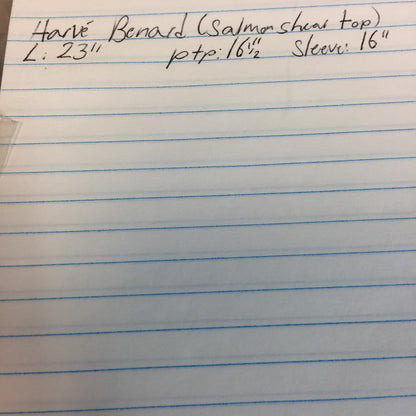 Harvé Benard (Salmon shear top)
L: 23" ptp: 16 1/2" Sleeve: 16"